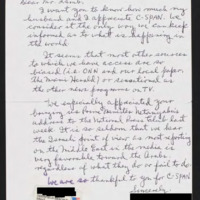 Dear Mr. Lamb,
I want you to know how much my
husband and I appreciate C-SPAN. We
consider it the only way we can keep
informed as to what is happening in
the world.
It seems that most other sources
to which we have access are so
biased (i.e. CNN and our local paper
the Miami Herald) or sensational as
the other news programs on TV.
We especially appreciated your
bringing us Prime Minister Netanyahu's
address to the National Press Club last
week. It is so seldom that we hear
the Israeli point of view as most reporting
on the Middle East in the media is
very favorable toward the Arabs
regardless of what they do or fail to do.
We are so thankful to you for C-SPAN
Sincerely,